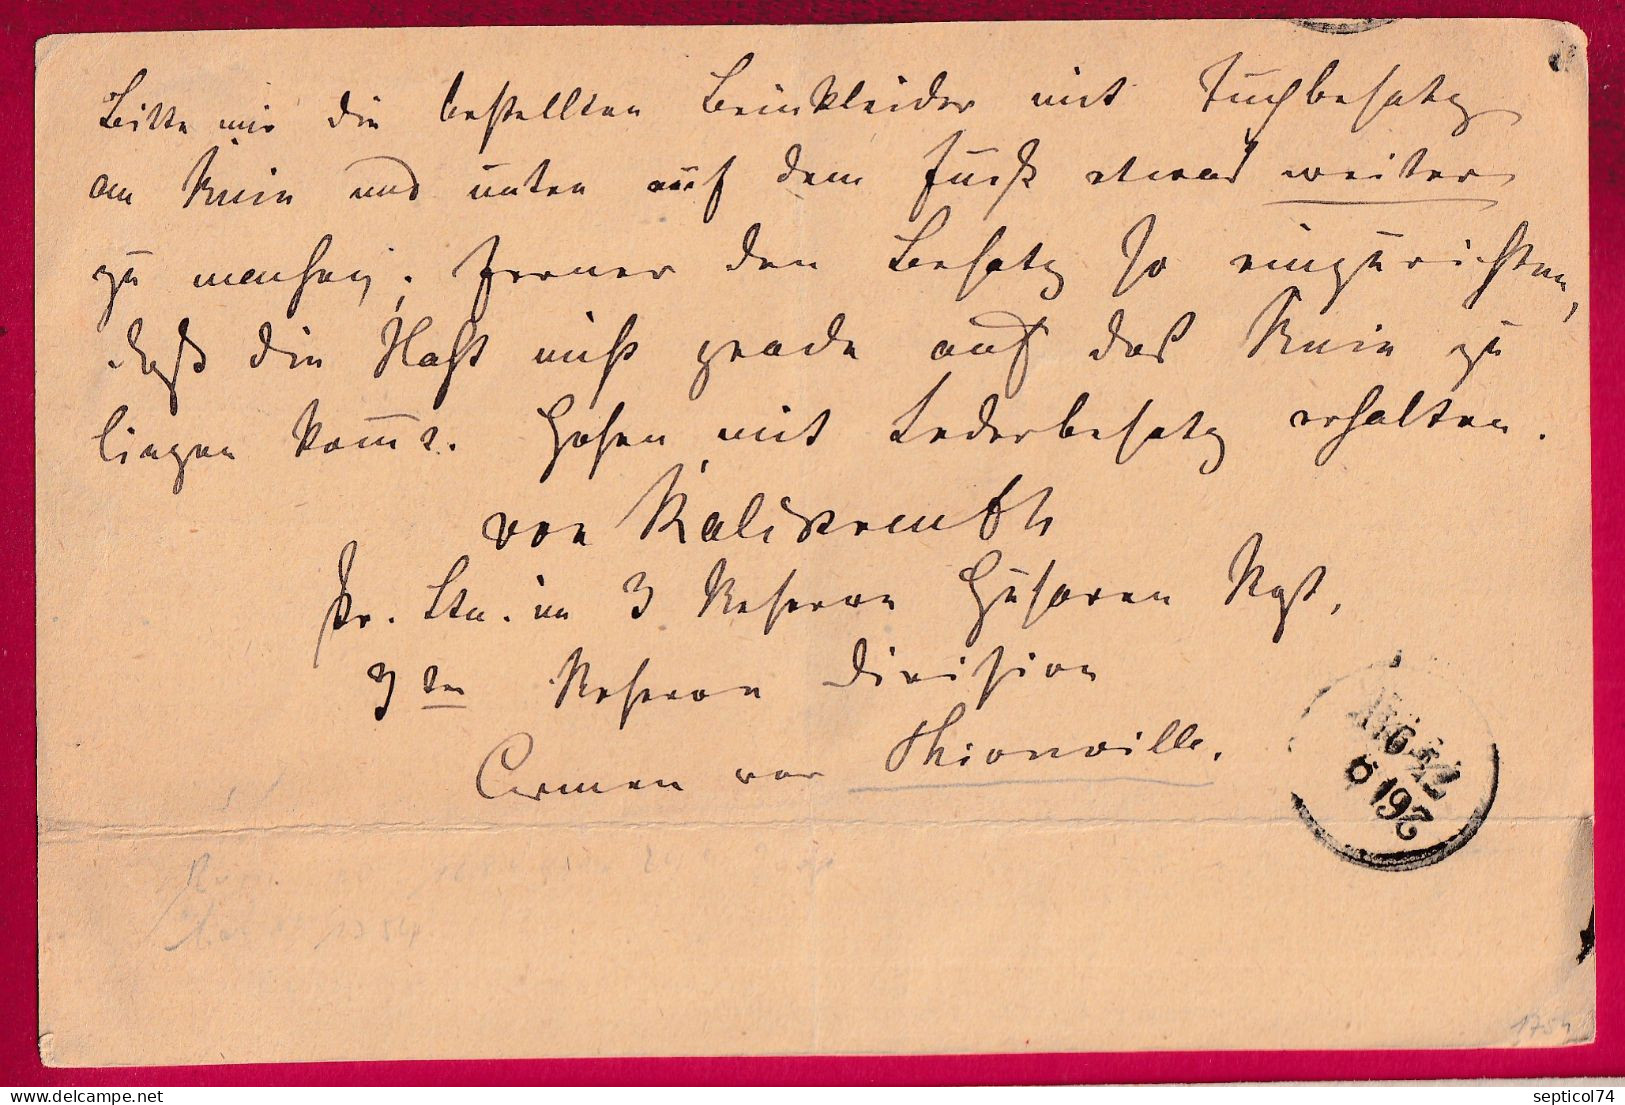 Bitte mir die bestellten Beinkleider mit Tuchbesatz
am Knie und unten auf dem Fuß etwas weiter
zu machen; ferner den Besatz so einzurichten,
daß die Naht nicht grade auf das Knie zu
liegen kommt. Hosen mit Lederbesatz erhalten.
von
Pr. Ltn. im 3 Reserve Husaren Rgt,
3ten Reserve Division
vor Thionville.
1754
delcampe.net
septicol74